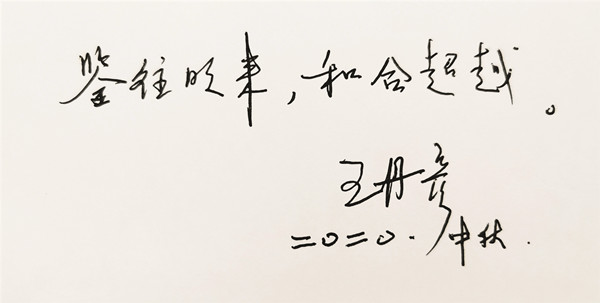 鉴往明来，和合超越。
王丹彦
二〇二〇.中秋.